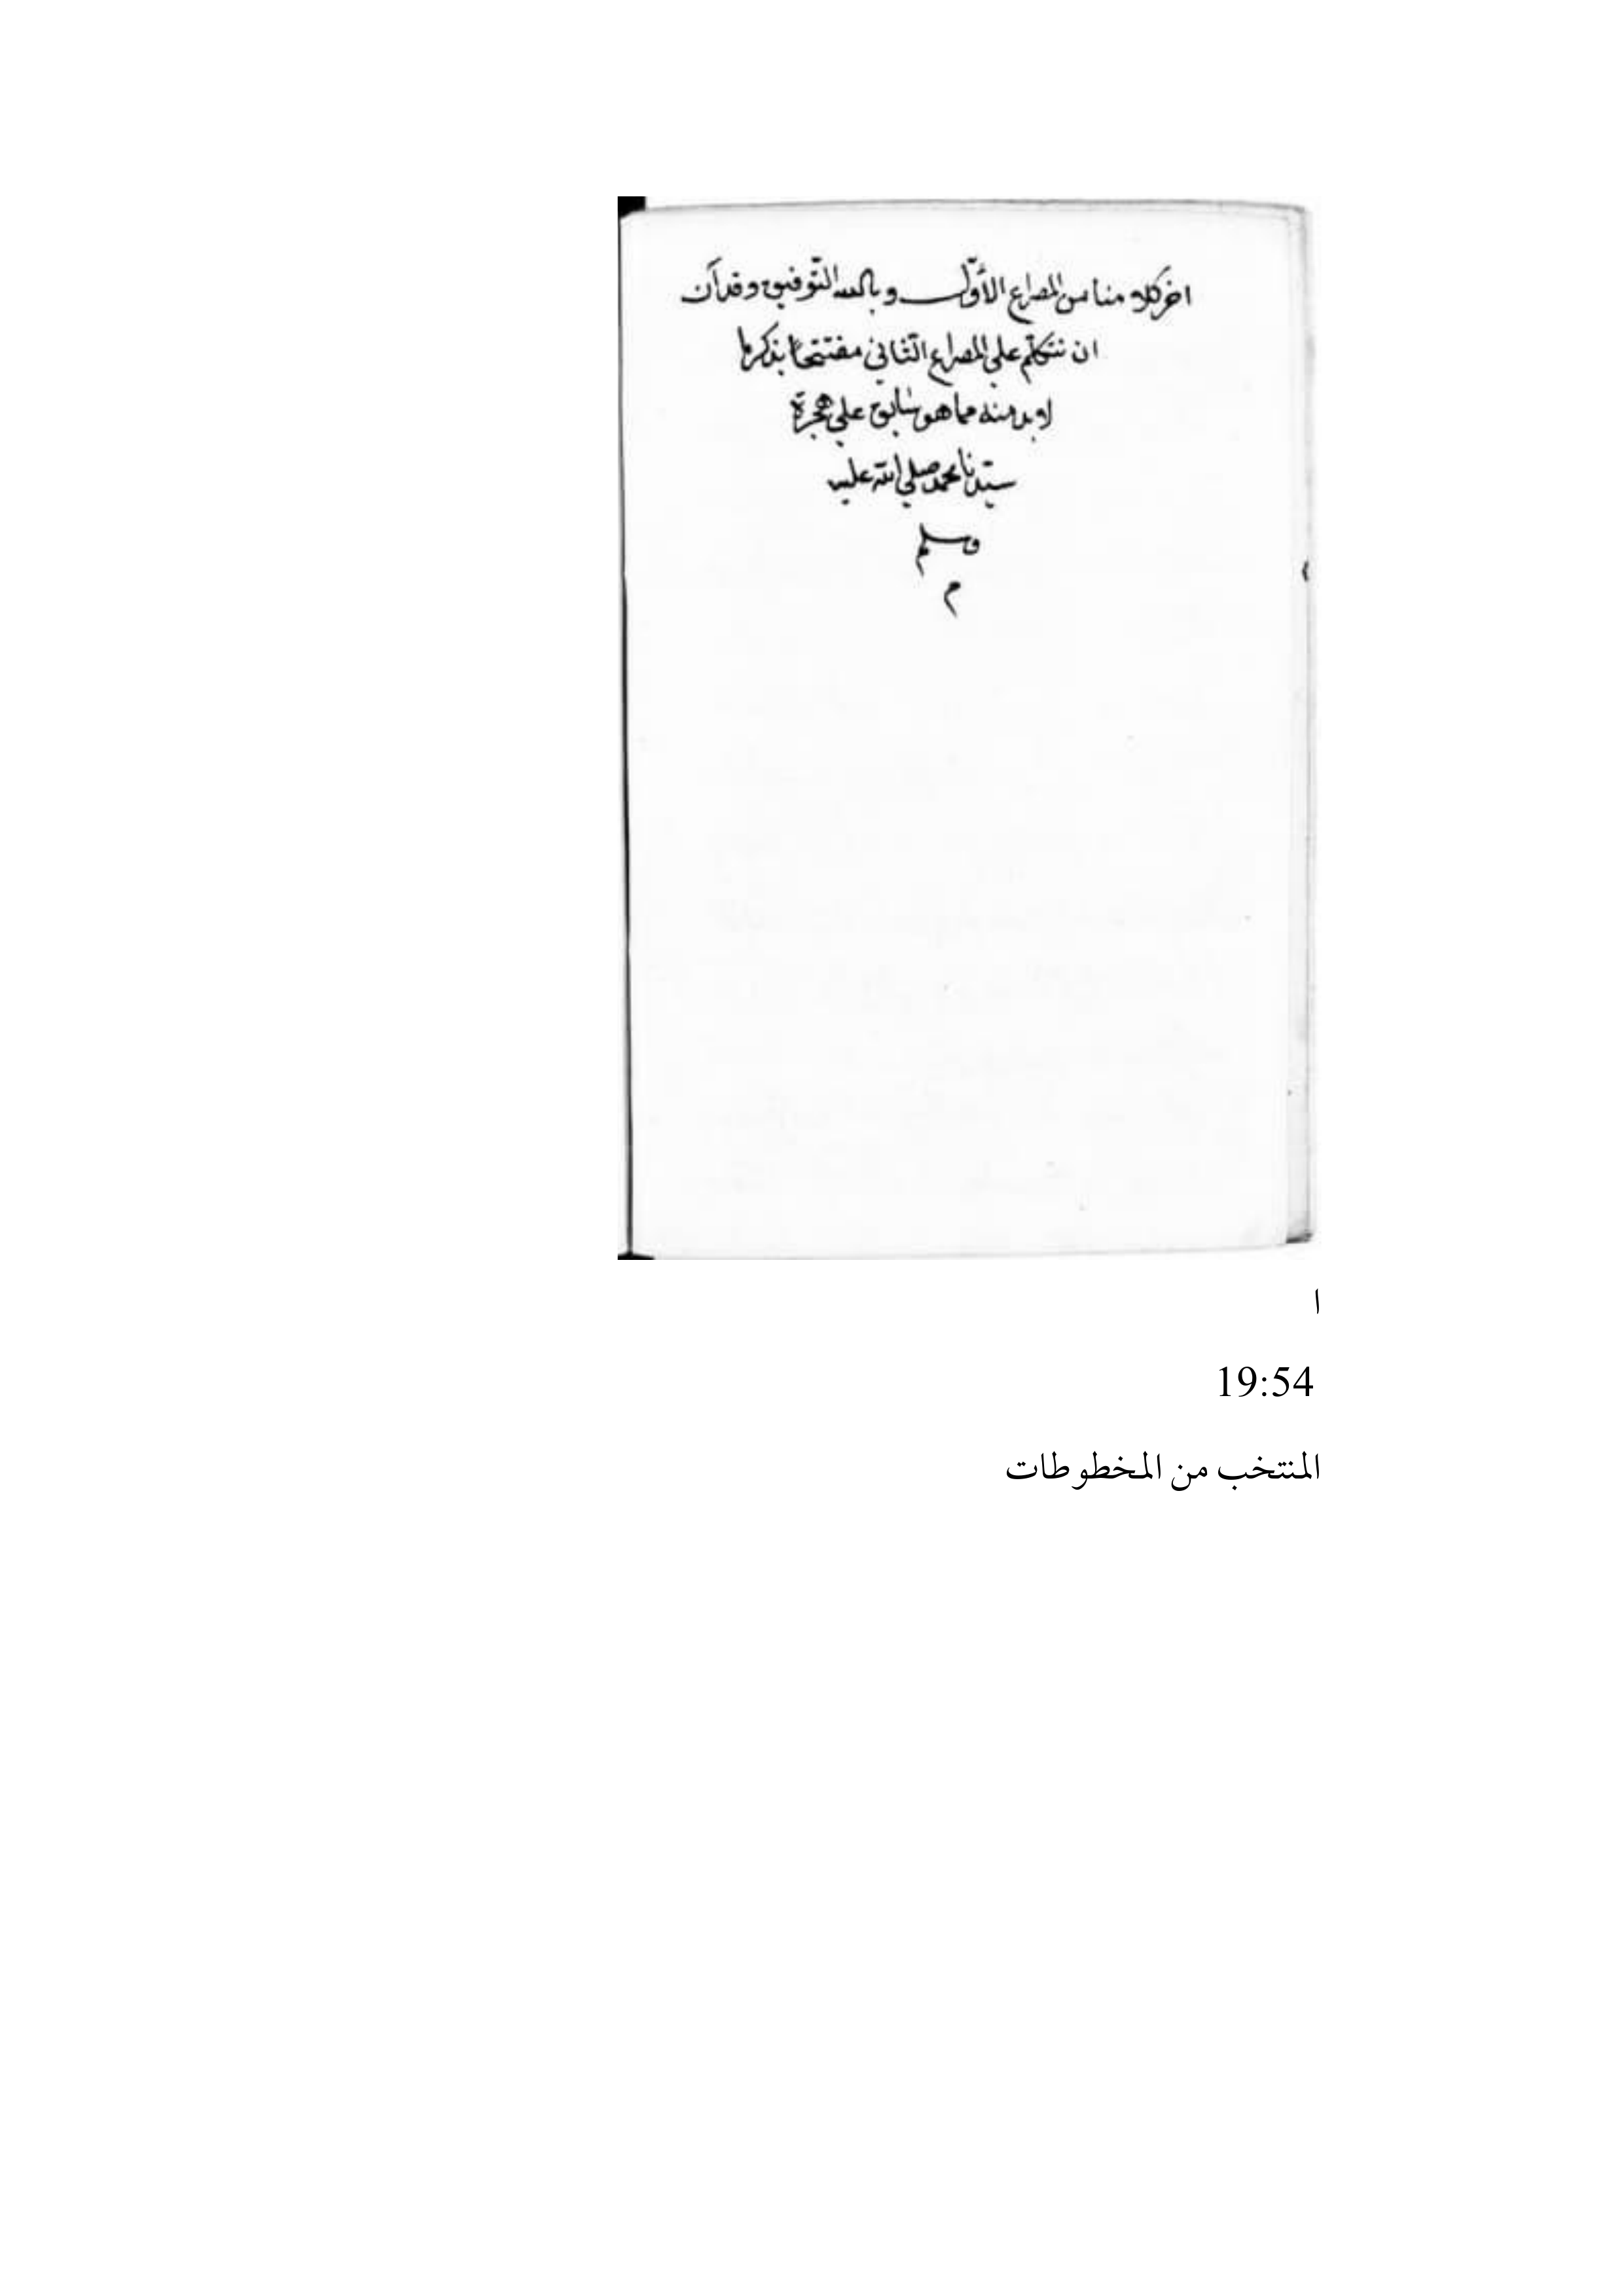 اخر كلامنا من المصراع الأوّل وبالله التّوفيق وقد آن
ان نتكلّم علي المصراع الثّاني مفتتحًا بذكر ما
لا بد منه مما هو سابق علي هجرة
سيّدنا محمد صلي الله عليه
وسلم
م
ا
19:54
المنتخب من المخطوطات